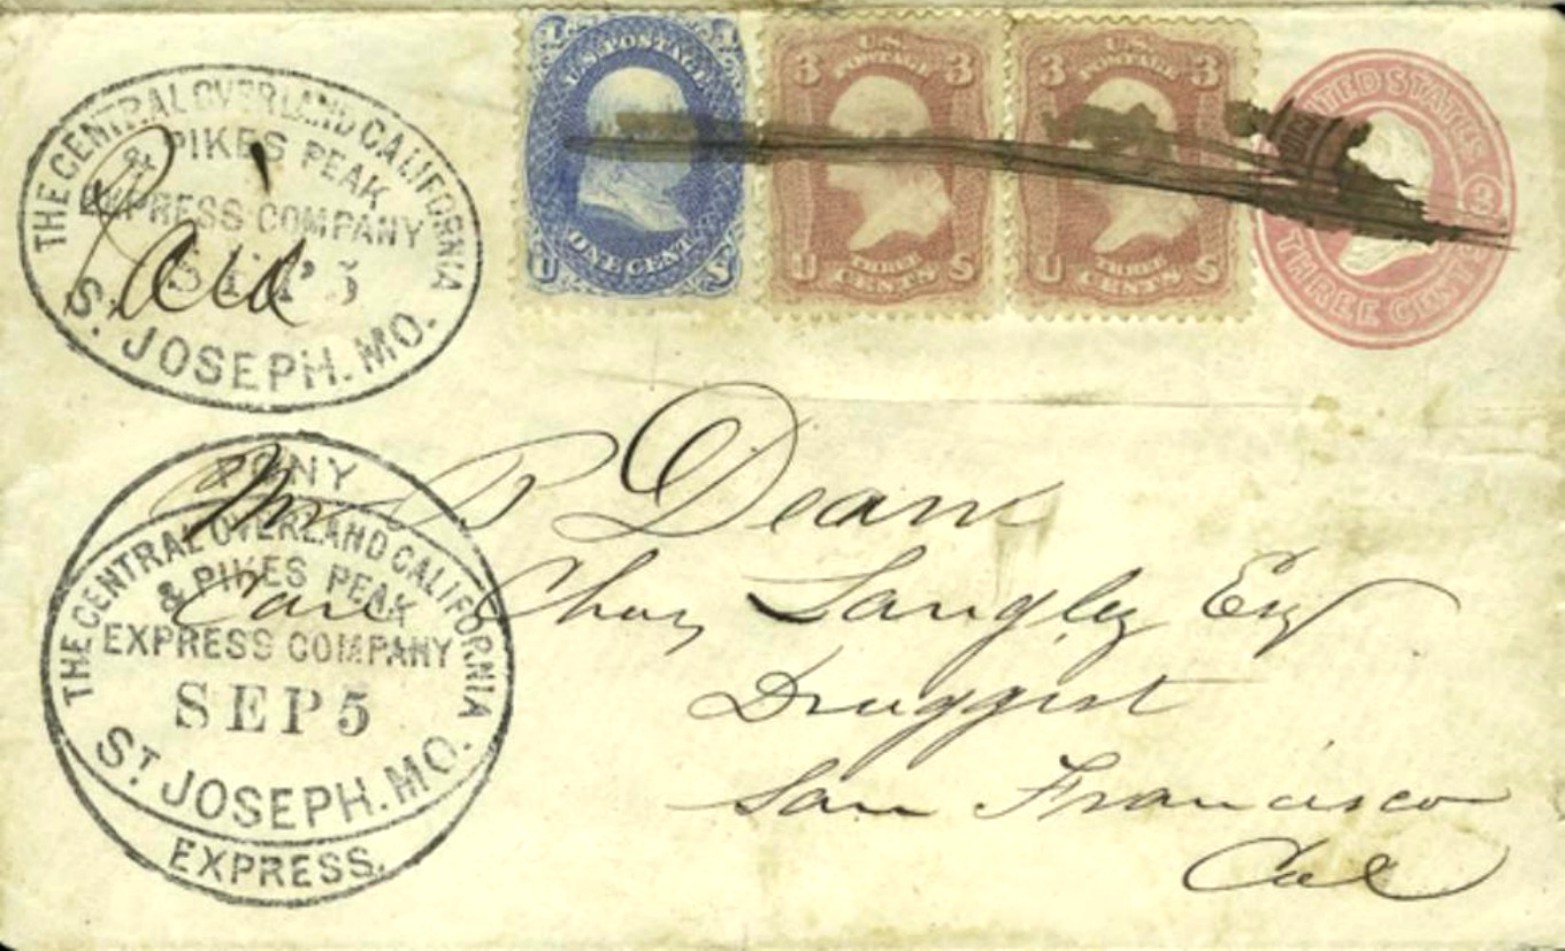 THE CENTRAL OVERLAND CALIFORNIA
& PIKES PEAK
EXPRESS COMPANY
SEP 5
ST. JOSEPH. MO.
Paid
1 U.S. POSTAGE 1
ONE CENT
U S
U.S.
3 POSTAGE 3
U THREE S
CENTS
U.S.
3 POSTAGE 3
U THREE S
CENTS
UNITED STATES
3
THREE CENTS
PONY
THE CENTRAL OVERLAND CALIFORNIA
& PIKES PEAK
EXPRESS COMPANY
SEP 5
ST JOSEPH. MO.
EXPRESS.
B Deane
Care Chas Langley Esq
Druggist
San Francisco
Cal